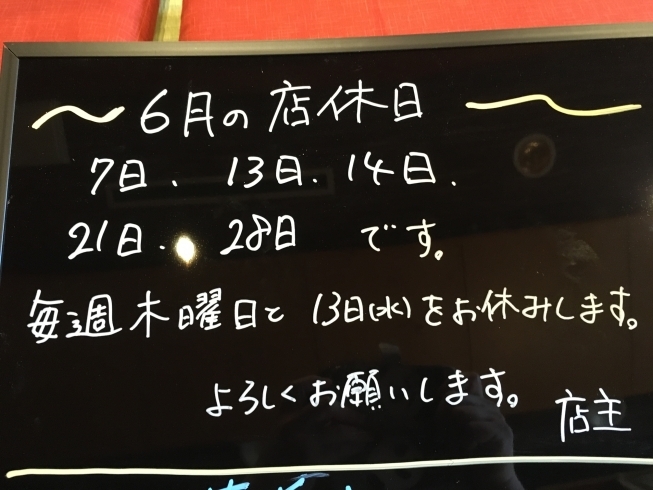 〜6月の店休日〜
7日、13日、14日、
21日、28日 です。
毎週木曜日と13日(水)をお休みします。
よろしくお願いします。
店主